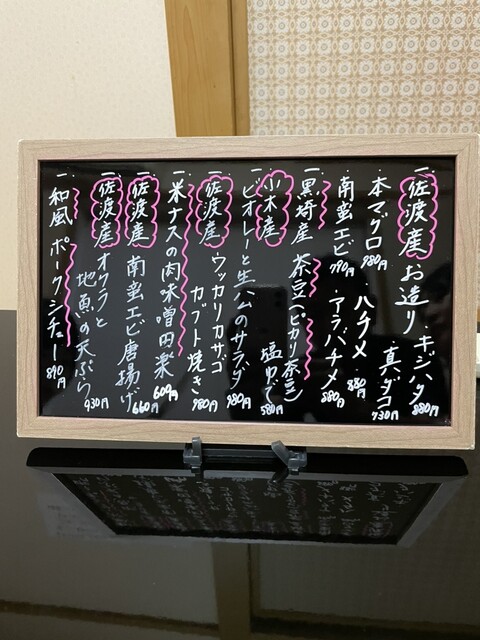 一、佐渡産 お造り・キジハタ 880円
本マグロ 980円 ・真ダコ 730円
・ハチメ 880円
南蛮エビ 790円 ・アラバチメ 880円
一、黒埼産 茶豆(ピカリ茶豆)
塩ゆで 580円
一、小木産
ビオレーと生ハムのサラダ 980円
一、佐渡産 ウッカリカサゴ
カブト焼き 980円
一、米ナスの肉味噌田楽 600円
一、佐渡産 南蛮エビ唐揚げ 660円
一、佐渡産 オクラと
地魚の天ぷら 930円
一、和風ポークシチュー 890円